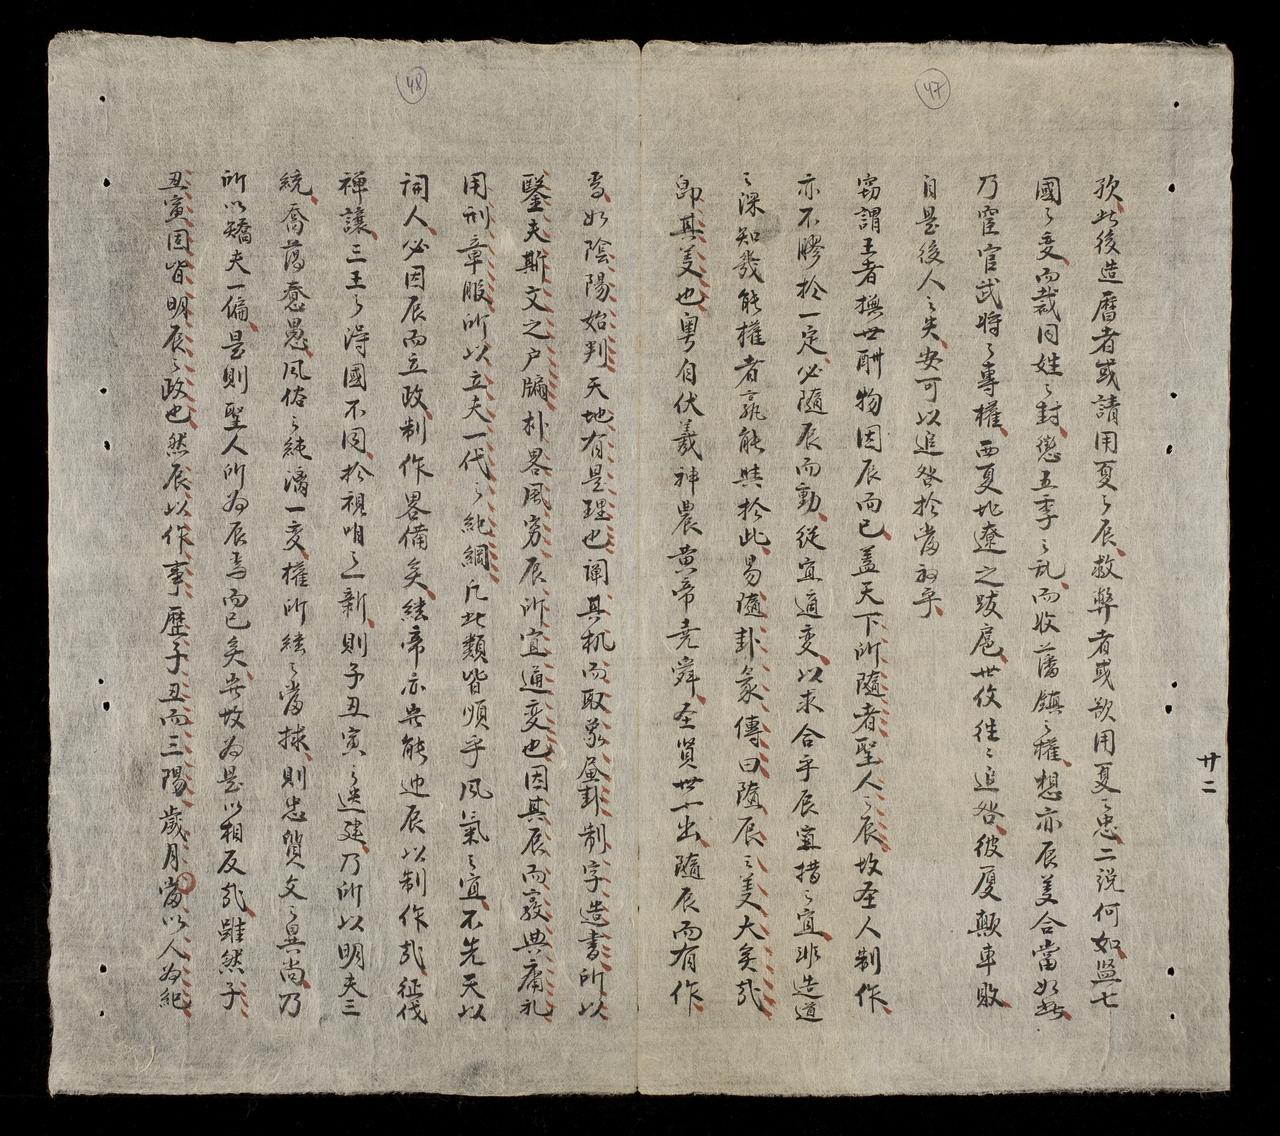 47
欤此後造曆者或請用夏之辰救弊者或欲用夏之忠二説何如監七
國之变而裁同姓之封懲五季之乱而收藩鎮之權想亦辰美合當如此
乃宦官武将之專權西夏北遼之跋扈世仅徃之追咎彼覆顛車敗
自是後人之失安可以追咎於當初乎
窃謂王者撫世酬物因辰而已盖天下所隨者聖人之辰故圣人制作
亦不膠於一定必隨辰而動從宜適变以求合乎辰宜措之宜非造道
之深知幾能權者孰能與於此易隨卦彖傳曰隨辰之美大矣哉
即其美也粤自伏羲神農黄帝尭舜圣贤世出隨辰而有作
48
焉如陰陽始判天地有是理也阐其机而取象畫卦制字造書所以
鑿夫斯文之户牖朴畧風穷辰所宜通变也因其辰而裒典庸礼
用刑章服所以立夫一代之純綱凡此類皆順乎風氣之宜不先天以
詞人必因辰而立政制作畧備矣繼帝亦安能迆辰以制作哉征伐
禅讓三王之得國不同於視咱之一新則子丑寅之迭建乃所以明夫三
統喬蕩惷愚風俗之純漓一变權所繼之當捄則忠質文之異尚乃
所以矯夫一偏是則聖人所为辰焉而已矣安故为是以相反哉雖然子
丑寅固皆明辰之政也然辰以作事歷子丑而三陽歲月當以人为紀
廿二